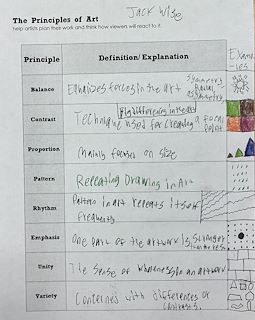 Jack Wise
The Principles of Art
help artists plan their work and think how viewers will react to it.
Principle
Definition/ Explanation
Exam
les
Balance
Equalizes forces in the art
Symmetry
Radial
Asymmetry
Contrast
Big differences in the art
Technique used for creating a focal
point
Proportion
Mainly focuses on size
Pattern
Repeating Drawing in Art
Rhythm
Pattern in art repeats itself
frequently
Emphasis
One part of the artwork is stronger
than the rest
Unity
The sense of wholeness in an artwork
Variety
Concerned with differences or
contrasts.